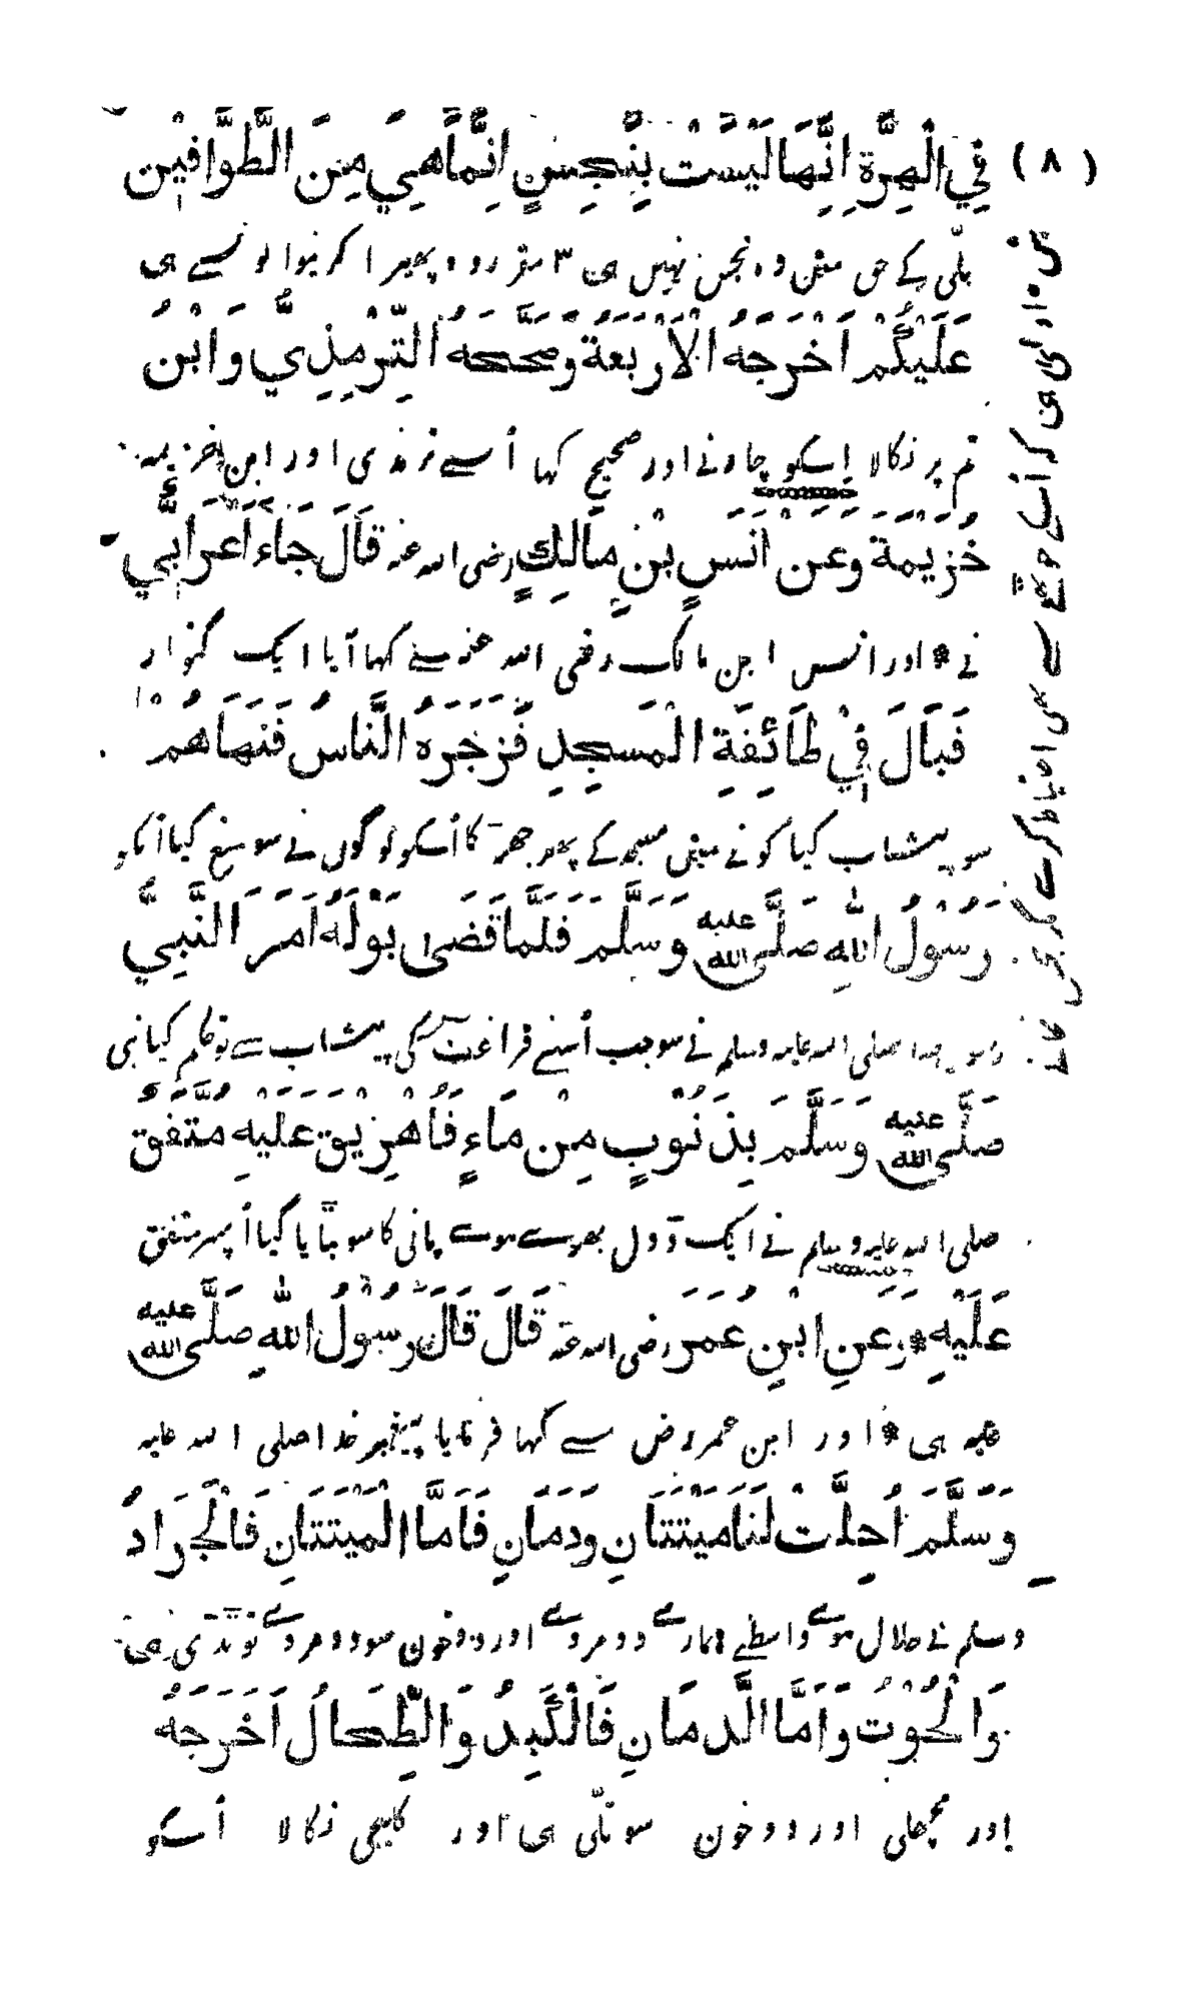 ( ٨ ) فِي الْهِرَّةِ إِنَّهَا لَيْسَتْ بِنَجِسٍ إِنَّمَا هِيَ مِنَ الطَّوَّافِيْنَ
بلّی کے حق میں وہ نجس نہیں ہی ٣ مقرر وہ پھیرا کرنیوالونسے ہی
عَلَيْكُمْ أَخْرَجَهُ الْأَرْبَعَةُ وَصَحَّحَهُ التِّرْمِذِيُّ وَابْنُ
تم پر نکالا اسکو چارونے اور صحیح کہا اُسے ترمذی اور ابن خزیمہ
خُزَيْمَةَ وَعَن أَنَسِ بْنِ مَالِكٍ رضی الله عنه قَالَ جَاءَ أَعْرَابِيٌّ
نے * اور انس ابن مالک رضی الله عنہ سے کہا آیا ایک گنوار
فَبَالَ فِيْ طَائِفَةِ الْمَسْجِدِ فَزَجَرَهُ النَّاسُ فَنَهَاهُمْ
سو پیشاب کیا کونے میں مسجد کے پھر جھڑکا اُسکو لوگوں نے سو منع کیا اُنکو
رَسُوْلُ اللهِ صَلَّى الله عليه وَسَلَّمَ فَلَمَّا قَضَى بَوْلَهُ أَمَرَ النَّبِيُّ
رسول خدا صلی الله علیہ وسلم نے سو جب اُسنے فراغت کی پیشاب سے تو حکم کیا نبی
صَلَّى الله عليه وَسَلَّمَ بِذَنُوْبٍ مِنْ مَاءٍ فَأُهْرِيْقَ عَلَيْهِ مُتَّفَقٌ
صلی الله علیہ وسلم نے ایک ڈول بھرے ہوے پانی کا سو بہایا گیا اُسپر متفق
عَلَيْهِ * وَعَنِ ابْنِ عُمَرَ رضی الله عنه قَالَ قَالَ رَسُوْلُ اللهِ صَلَّى الله عليه
علیہ ہی * اور ابن عمر رض سے کہا فرمایا پیغمبر خدا صلی الله علیہ
وَسَلَّمَ أُحِلَّتْ لَنَا مَيْتَتَانِ وَدَمَانِ فَأَمَّا الْمَيْتَتَانِ فَالْجَرَادُ
وسلم نے حلال ہوے واسطے ہمارے دو مردے اور دو خون سو دو مردے تو ٹڈی ہی
وَالْحُوْتُ وَأَمَّا الدَّمَانِ فَالْكَبِدُ وَالطِّحَالُ أَخْرَجَهُ
اور مچھلی اور دو خون سو تلّی ہی اور کلیجی نکالا اُسکو
اولی ہی کہ اُسکے جوٹھے سے بھی احتیاط کرے